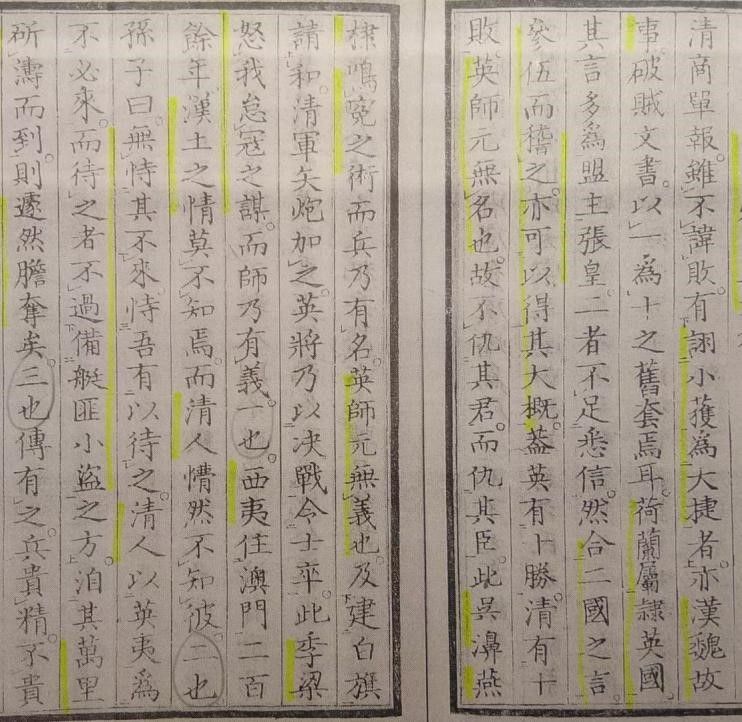 清商單報。雖不諱敗。有詡小獲爲大捷者。亦漢魏故
事。破賊文書。以一爲十之舊套焉耳。荷蘭屬隷英國
其言多爲盟主張皇。二者不足悉信。然合二國之言
參伍而稽之。亦可以得其大概。葢英有十勝。清有十
敗。英師元無名也。故不仇其君。而仇其臣。此吳濞燕
棣鳴寃之術而兵乃有名。英師元無義也。及建白旗
請和。清軍矢炮加之。英將乃以决戰令士卒。此季梁
怒我怠冦之謀。而師乃有義。一也。西夷住澳門二百
餘年。漢土之情莫不知焉。而清人懵然不知彼。二也
孫子曰。無恃其不來。恃吾有以待之。清人以英夷爲
不必來。而待之者。不過備艇匪小盜之方。洎其萬里
斫濤而到。則遽然膽奪矣。三也。傳有之。兵貴精。不貴